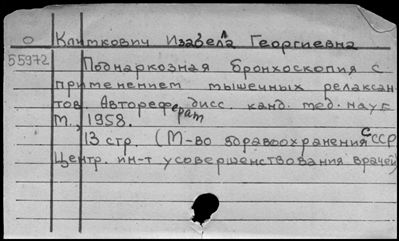 О Клиткович Изабелла Георгиевна
55972 Поднаркозная бронхоскопия с
применением мышечных релаксан
тов. Автореферат дисс. канд. мед. наук
М., 1958.
13 стр. (М-во здравоохранения СССР
Центр. ин-т усовершенствования врачей)